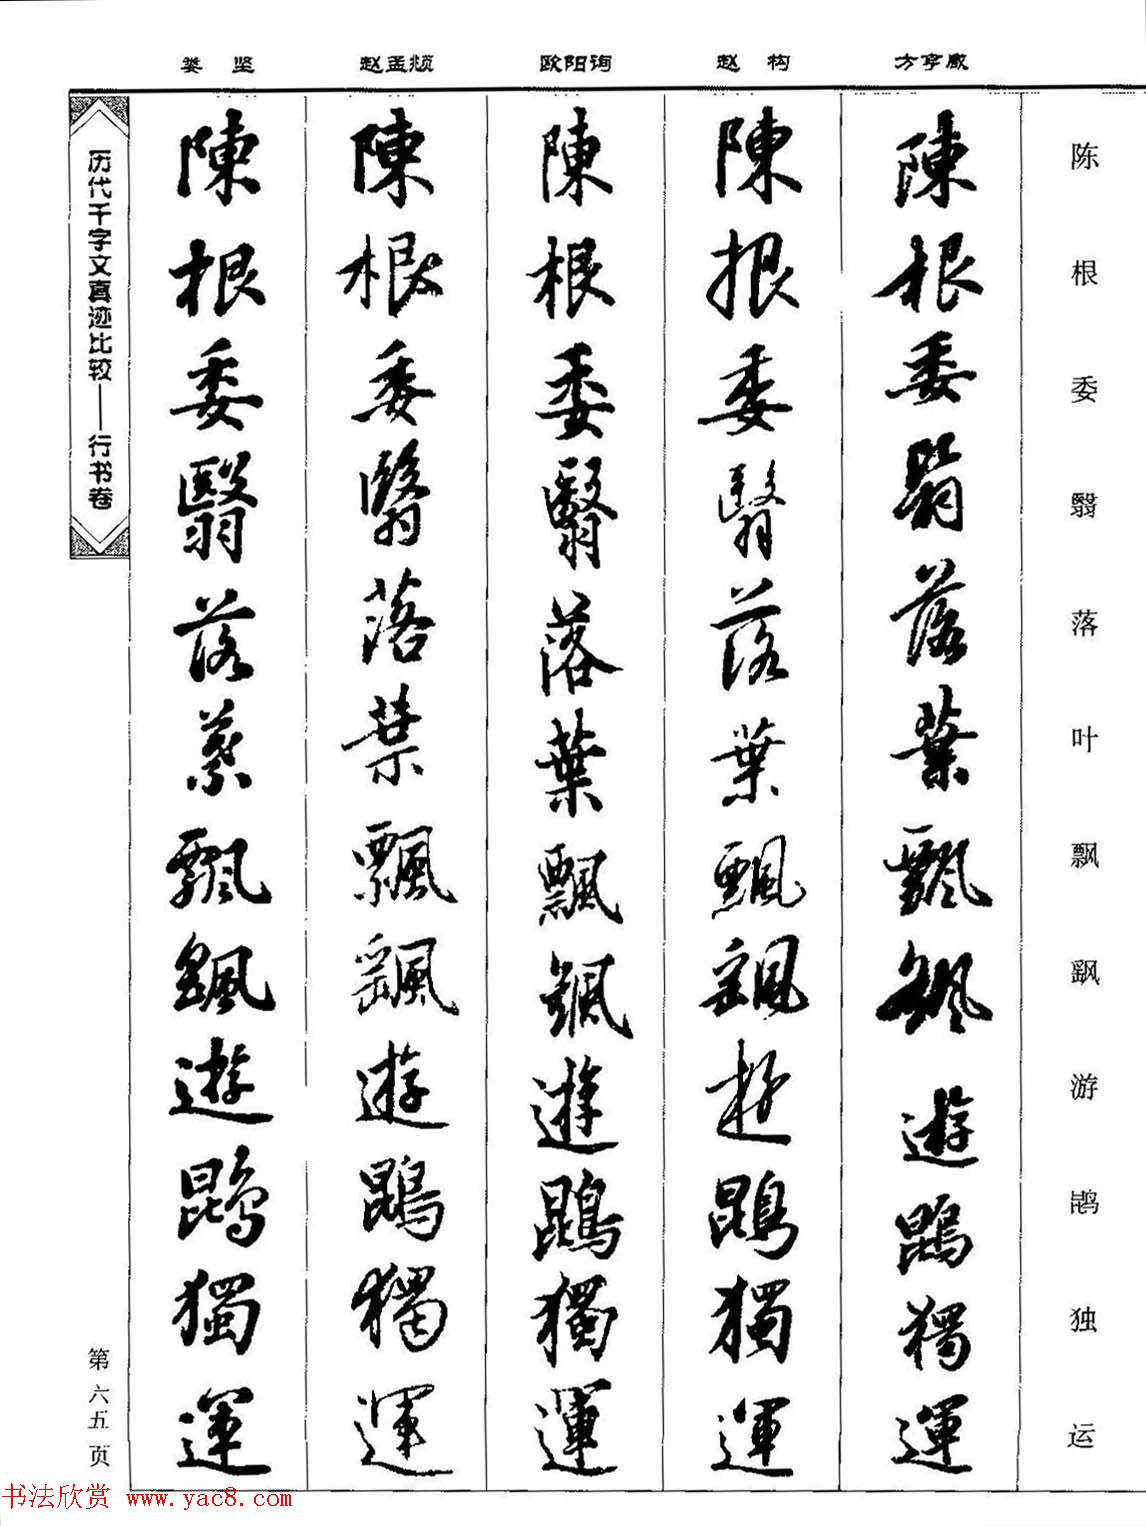 陈根委翳落叶飘飖游鹍独运
方亨咸
陳根委翳落葉飄颻遊鵾獨運
赵构
陳根委翳落葉飄颻遊鵾獨運
欧阳询
陳根委翳落葉飄颻遊鵾獨運
赵孟頫
陳根委翳落葉飄颻遊鵾獨運
娄坚
陳根委翳落葉飄颻遊鵾獨運
历代千字文真迹比较——行书卷
第六五页
书法欣赏 www.yac8.com